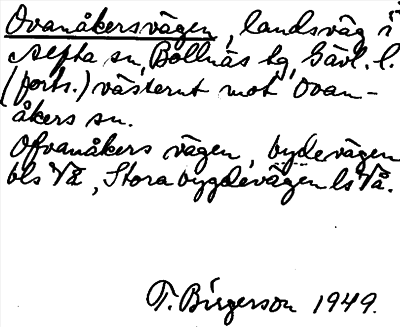 Ovanåkersvägen, landsväg i
Alfta sn, Bollnäs tg, Gävl. l.
(forts.) västerut mot Ovan-
åkers sn.
Ofvanåkers vägen, bydevägen
bls VZ, Stora bygdevägen ls Vå.
T. Birgerson 1949.